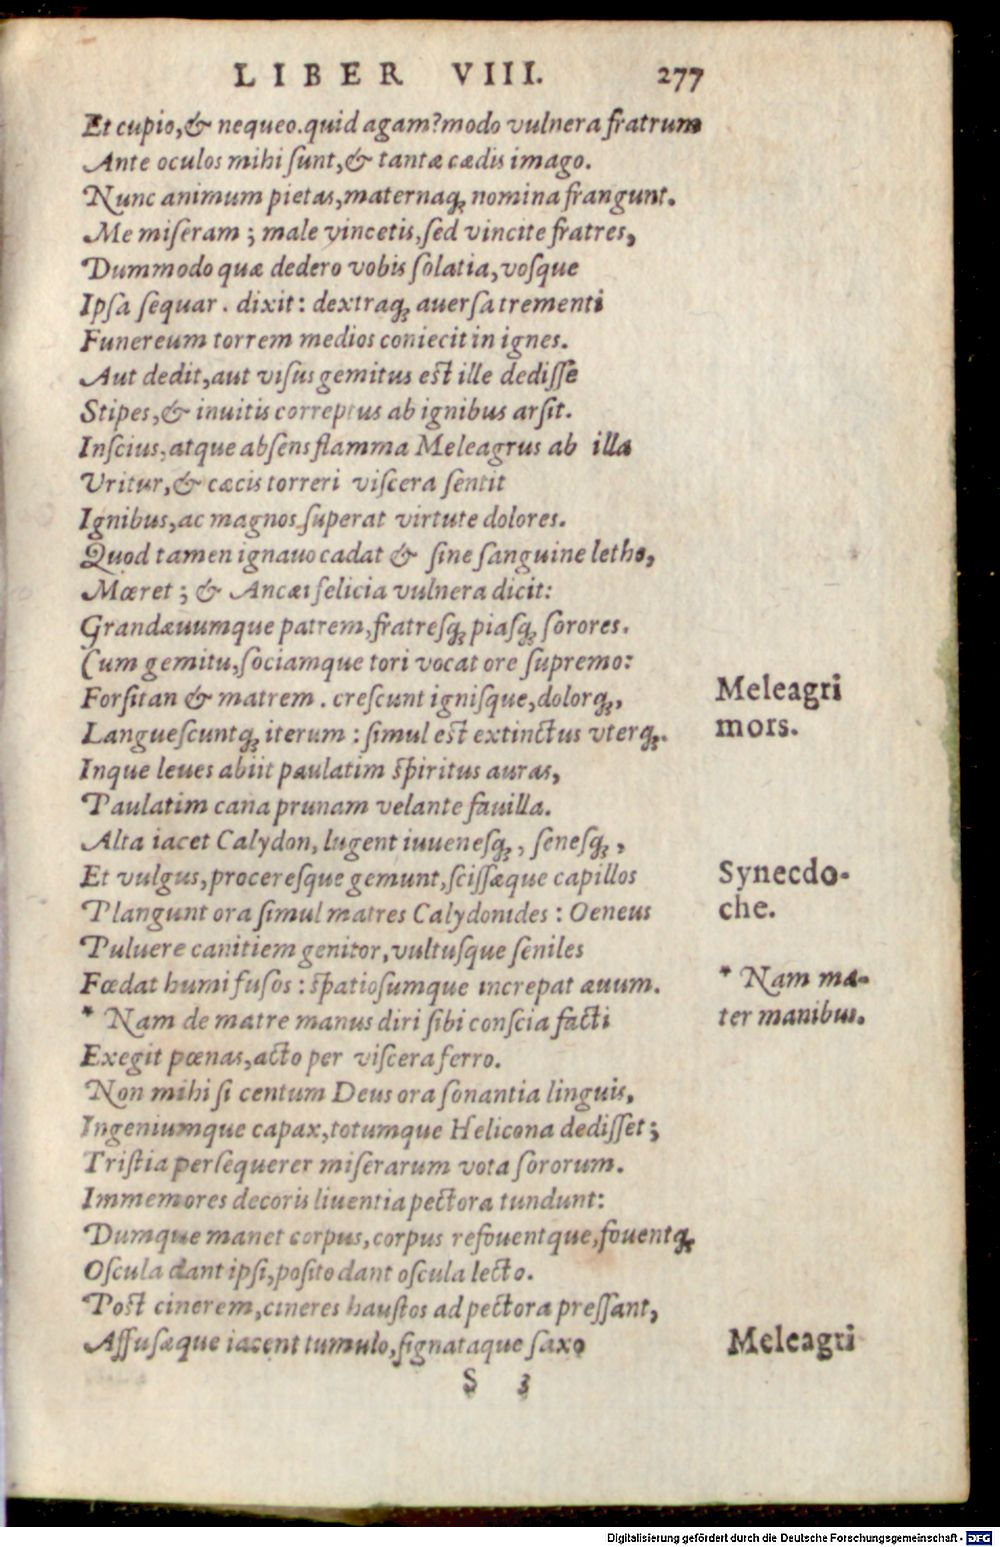 LIBER VIII. 277
Et cupio,& nequeo.quid agam?modo vulnera fratrum
Ante oculos mihi sunt,& tantæ cædis imago.
Nunc animum pietas,maternaq; nomina frangunt.
Me miseram ; male vincetis,sed vincite fratres,
Dummodo quæ dedero vobis solatia,vosque
Ipsa sequar . dixit: dextraq; auersa trementi
Funereum torrem medios coniecit in ignes.
Aut dedit,aut visus gemitus est ille dedisse
Stipes,& inuitis correptus ab ignibus arsit.
Inscius,atque absens flamma Meleagrus ab illa
Vritur,& cæcis torreri viscera sentit
Ignibus,ac magnos superat virtute dolores.
Quod tamen ignauo cadat & sine sanguine letho,
Mœret ; & Ancæi felicia vulnera dicit:
Grandæuumque patrem,fratresq; piasq; sorores.
Cum gemitu,sociamque tori vocat ore supremo:
Forsitan & matrem . crescunt ignisque,dolorq;,
Languescuntq; iterum : simul est extinctus vterq;.
Meleagri
mors.
Inque leues abiit paulatim spiritus auras,
Paulatim cana prunam velante fauilla.
Alta iacet Calydon, lugent iuuenesq; , senesq; ,
Et vulgus,proceresque gemunt,scissæque capillos
Plangunt ora simul matres Calydonides : Oeneus
Synecdo-
che.
Puluere canitiem genitor,vultusque seniles
Fœdat humi fusos : spatiosumque increpat æuum.
* Nam de matre manus diri sibi conscia facti
* Nam ma-
ter manibus.
Exegit pœnas,acto per viscera ferro.
Non mihi si centum Deus ora sonantia linguis,
Ingeniumque capax,totumque Helicona dedisset;
Tristia persequerer miserarum vota sororum.
Immemores decoris liuentia pectora tundunt:
Dumque manet corpus,corpus refouentque,fouentq;
Oscula dant ipsi,posito dant oscula lecto.
Post cinerem,cineres haustos ad pectora pressant,
Affusæque iacent tumulo,signataque saxo
Meleagri
S 3
Digitalisierung gefördert durch die Deutsche Forschungsgemeinschaft - DFG